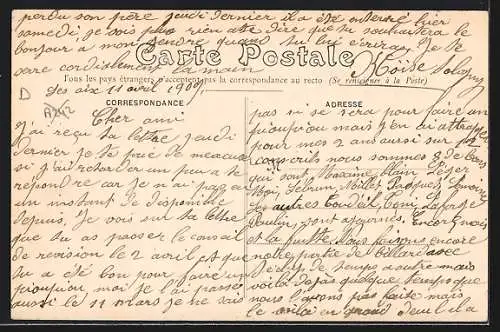 perdu son père jeudi dernier il a été enterré hier
samedi, je vois plus rien a te dire que tu souhaitera le
bonjour a mon quand tu lui écriras. Je te
serre cordialement la main
Carte Postale
Moïse
Tous les pays étrangers n'acceptent pas la correspondance au recto (Se renseigner à la Poste)
D
Les aix 11 avril 1909
CORRESPONDANCE
ADRESSE
Cher ami
j'ai reçu ta lettre jeudi
dernier je te prie de m'excuser
si j'ai retarder un peu a te
repondre car je n'ai pas eu
un instant de disponible
depuis. Je vois sur ta lettre
que tu as passer le conseil
de revision le 2 avril et que
tu a été bon pour faire un
pioupiou moi je l'ai passé
aussi le 11 mars je ne sais
pas si se sera pour faire un
pioupiou mais j'en ai attrapper
pour mes 2 ans aussi sur
conscrits nous sommes 8 de bons
qui sont Maxime Blain Léger
Moi, Lebrun Millet Jacques
les autres
Paulin, sont ajournés. Encor
et la fuitte. Nous faisons encore
notre partie de billard avec
de temps a autre mais
voila déjà quelque temps que
nous l'avons pas faite mais
le voila en grand deuil il a